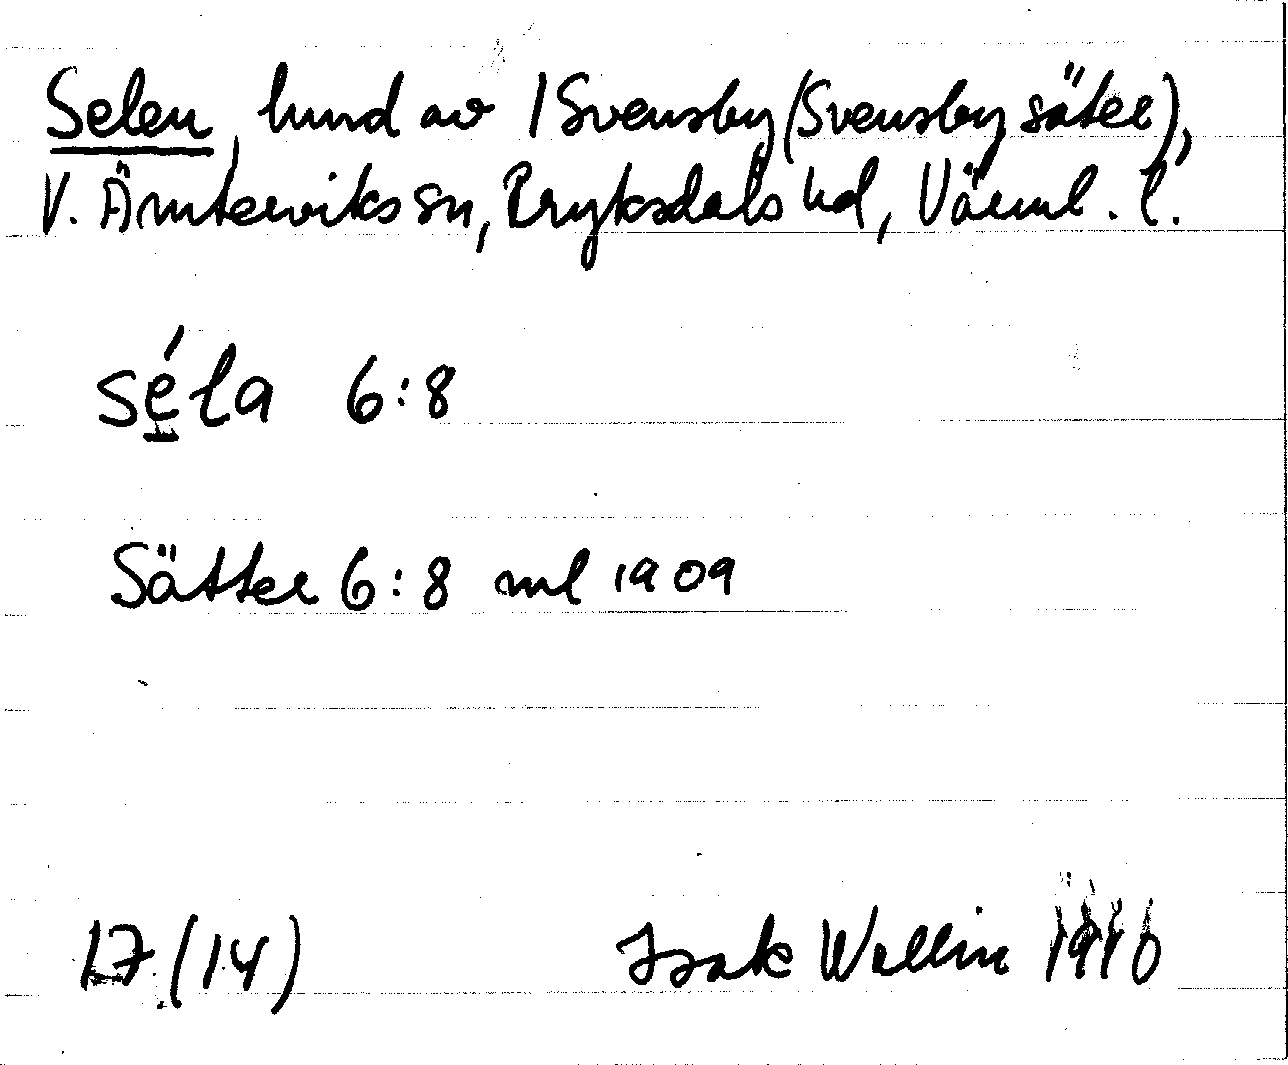 Selen, lund av 1 Svensby (Svensby säter),
V. Ämterviks sn, Fryksdals hd, Värml. l.
sé̱la 6:8
Sätter 6:8 ml 1909
17 (14)
Isak Wellin 1916